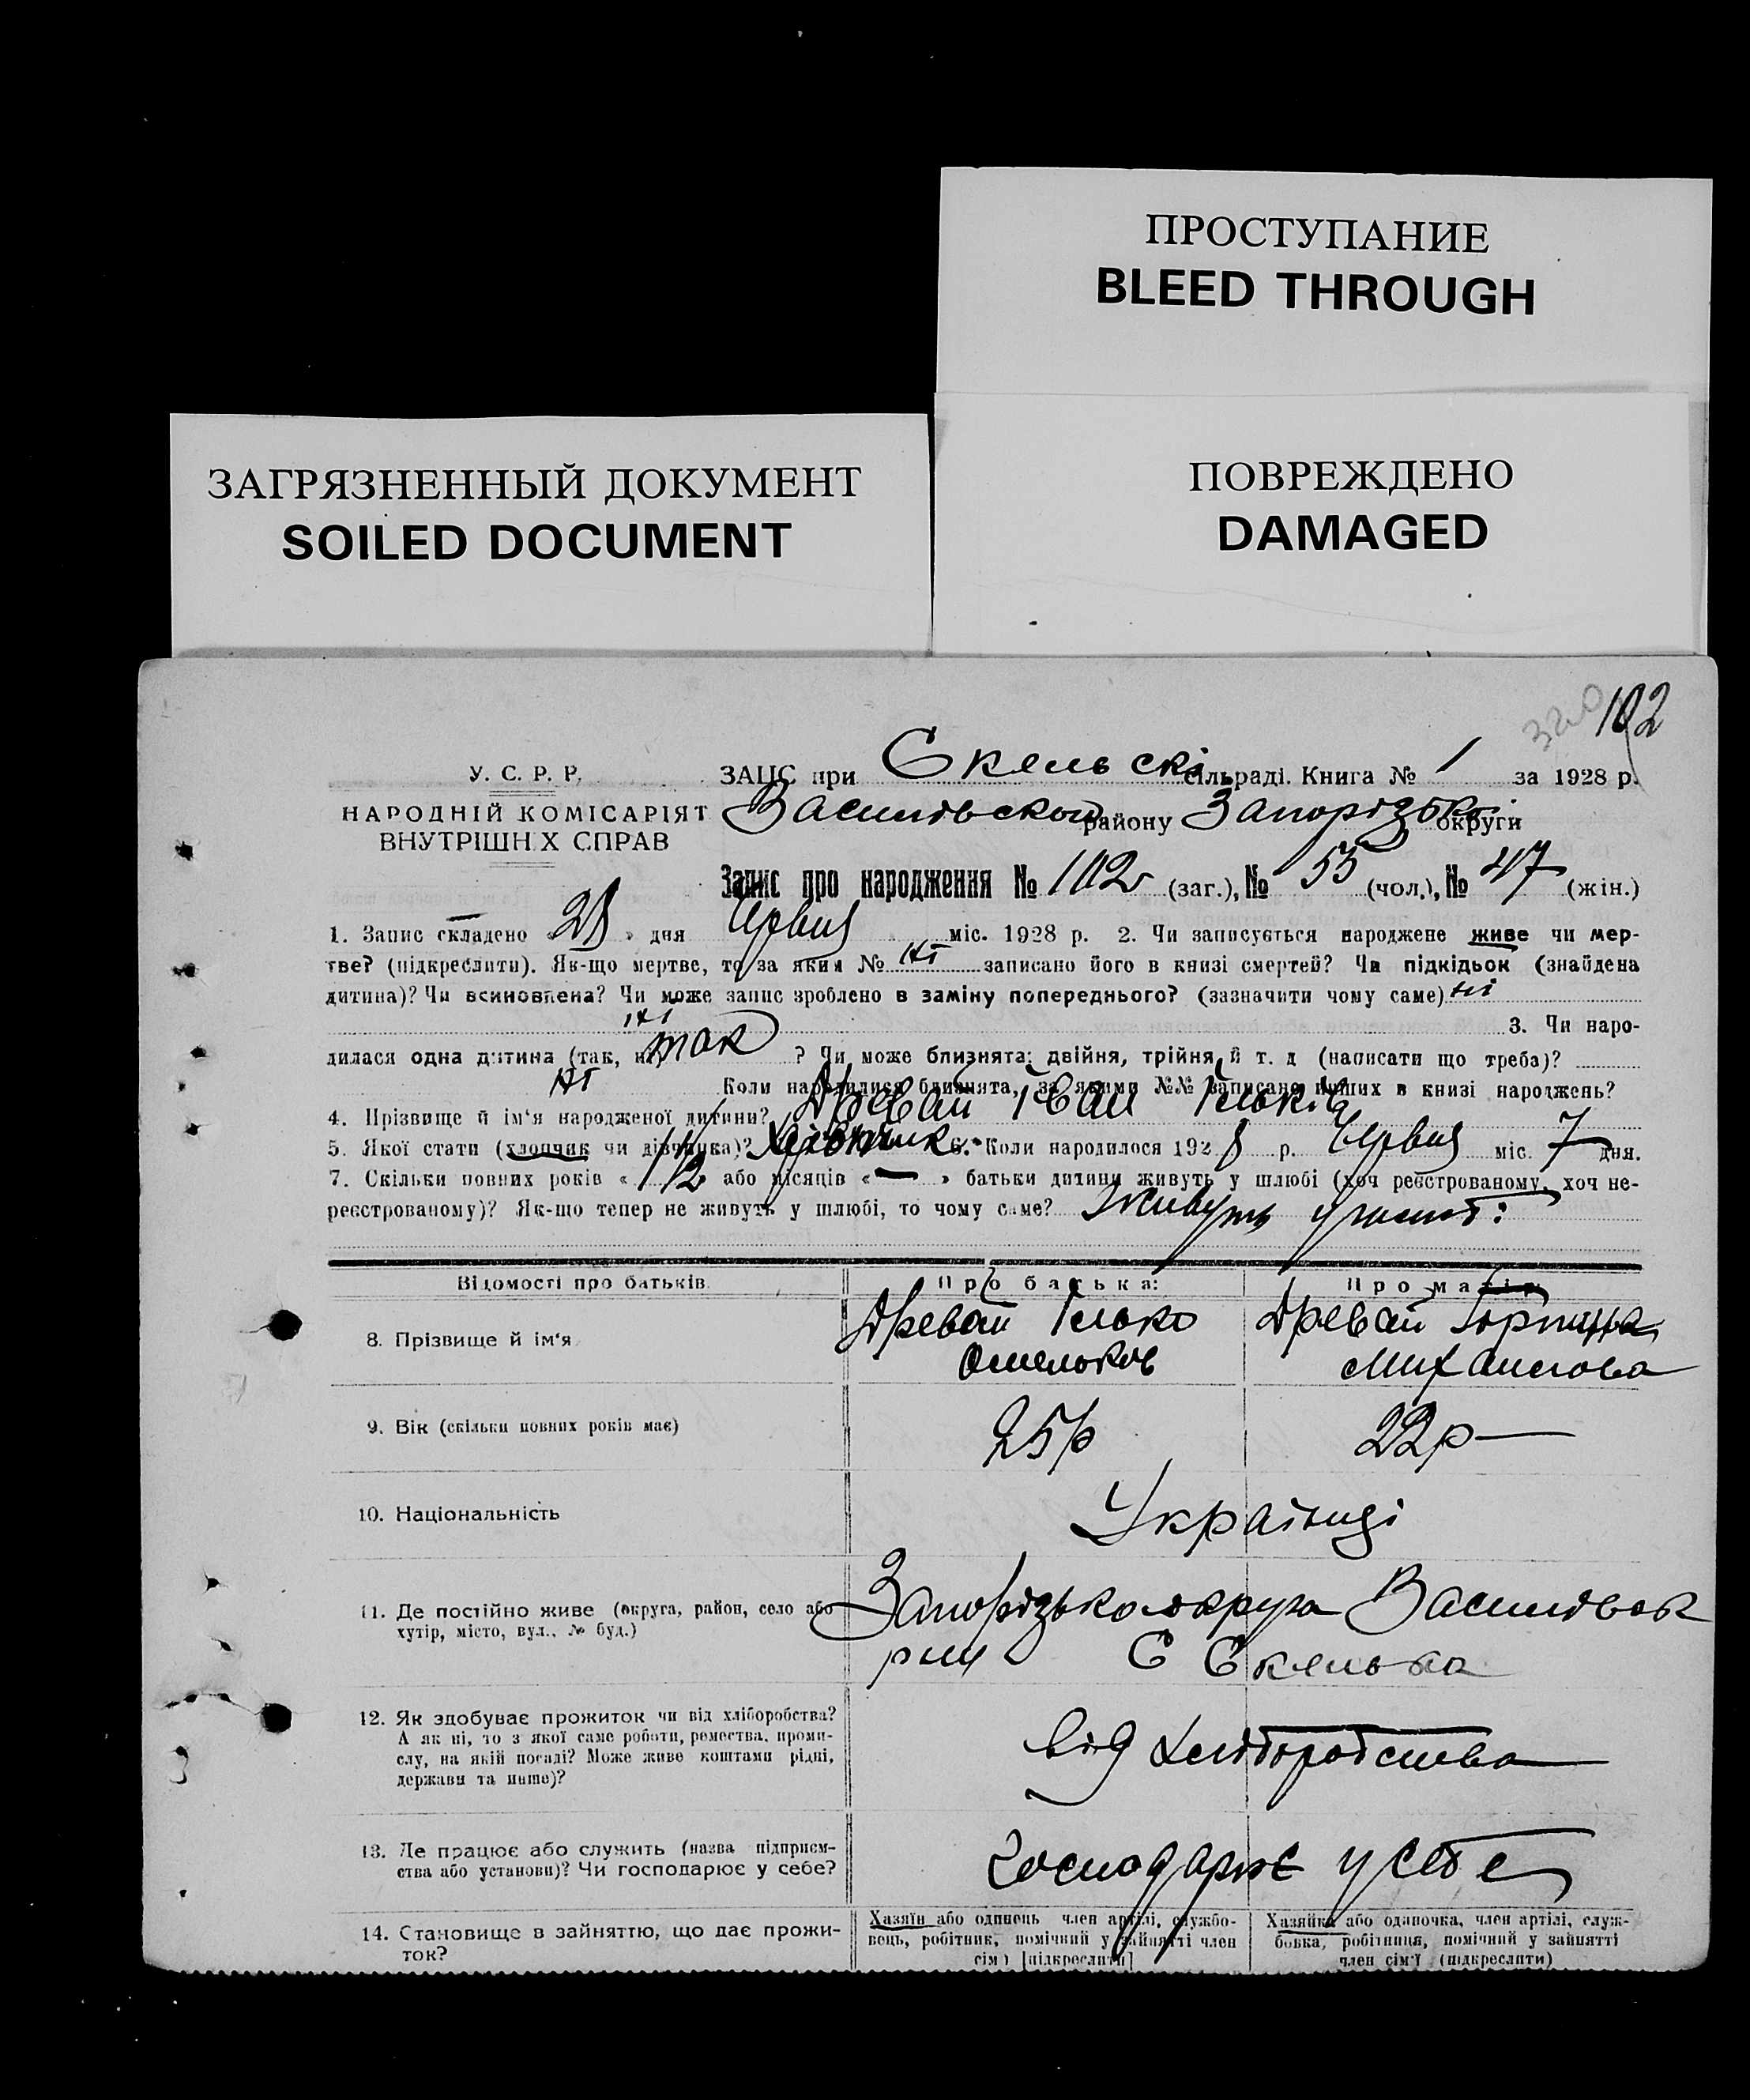 ПРОСТУПАНИЕ
BLEED THROUGH
ЗАГРЯЗНЕННЫЙ ДОКУМЕНТ
SOILED DOCUMENT
ПОВРЕЖДЕНО
DAMAGED
320 102
У. С. Р. Р.
НАРОДНІЙ КОМІСАРІЯТ
ВНУТРІШН Х СПРАВ
ЗАЦС при Скельскі сільраді. Книга № 1 за 1928 р.
Василівської району Запорізької округи
Запис про народження № 102 (заг.), № 55 (чол.), № 47 (жін.)
1. Запис складено « 28 » дня Червня міс. 1928 р. 2. Чи записується народжене живе чи мер-
тве? (підкреслити). Як-що мертве, то за яким № ні записано його в книзі смертей? Чи підкідьок (знайдена
дитина)? Чи всиновлена? Чи може запис зроблено в заміну попереднього? (зазначити чому саме) ні
ні 3. Чи наро-
дилася одна дитина (так, ні) так ? Чи може близнята: двійня, трійня й т. д (написати що треба)?
ні Коли народилися близнята, за якими №№ записано инших в книзі народжень?
4. Прізвище й ім'я народженої дитини? Древай Іван Ільків
5. Якої стати (хлопчик чи дівчинка)? Хлопчик 6. Коли народилося 1928 р. Червня міс. 7 дня.
7. Скільки повних років « 1 1/2 або місяців « — » батьки дитини живуть у шлюбі (хоч реєстрованому, хоч не-
реєстрованому)? Як-що тепер не живуть у шлюбі, то чому саме? Живуть у шлюбі
Відомості про батьків Про батька: Про матір
8. Прізвище й ім'я Древай Ілько Древай
Омельков Михайлова
9. Вік (скільки повних років має) 25 р 22 р
10. Національність Українці
11. Де постійно живе (округа, район, село або Запорізька округа Василівськ
хутір, місто, вул., № буд.) рну С Скелька
12. Як здобуває прожиток чи від хліборобства?
А як ні, то з якої саме роботи, ремества, проми-
слу, на якій посаді? Може живе коштами рідні,
держави та инше)?
від хліборобства
13. Де працює або служить (назва підприєм-
ства або установи)? Чи господарює у себе?
господарює у себе
14. Становище в зайняттю, що дає прожи-
ток?
Хазяїн або одинець член артілі, службо-
вець, робітник, помічний у зайнятті член
сім'ї [підкреслити]
Хазяйка або одиночка, член артілі, служ-
бовка, робітниця, помічний у зайнятті
член сім'ї (підкреслити)